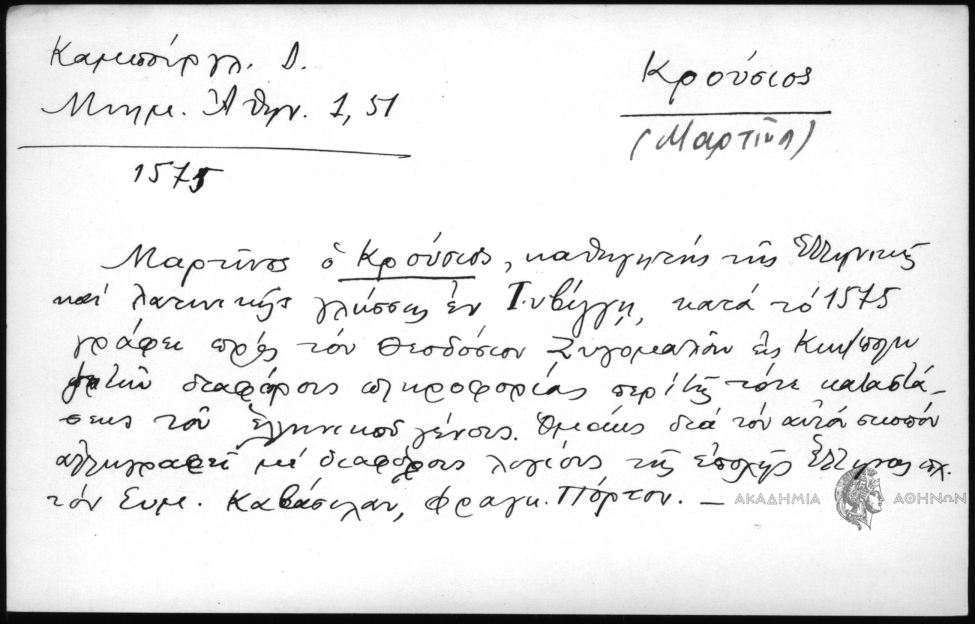 Καμπούργλ. Δ.
Μνημ. Ἀθην. 1, 51
1575
Κρούσιος
(Μαρτῖνος)
Μαρτῖνος ὁ Κρούσιος, καθηγητής τῆς Ἑλληνικῆς
καί λατινικῆς γλώσσης ἐν Τυβίγγῃ, κατά τό 1575
γράφει πρός τόν Θεοδόσιον Ζυγομαλᾶν εἰς Κων/πολιν
ζητῶν διαφόρους πληροφορίας περί τῆς τότε καταστά-
σεως τοῦ ἑλληνικοῦ γένους. Ὁμοίως διά τόν αὐτό σκοπόν
ἀλληλογραφεῖ μέ διαφόρους λογίους τῆς ἐποχῆς Ἕλληνας πχ.
τόν Συμ. Καβάσιλαν, Φραγκ. Πόρτον. —
ΑΚΑΔΗΜΙΑ ΑΘΗΝΩΝ